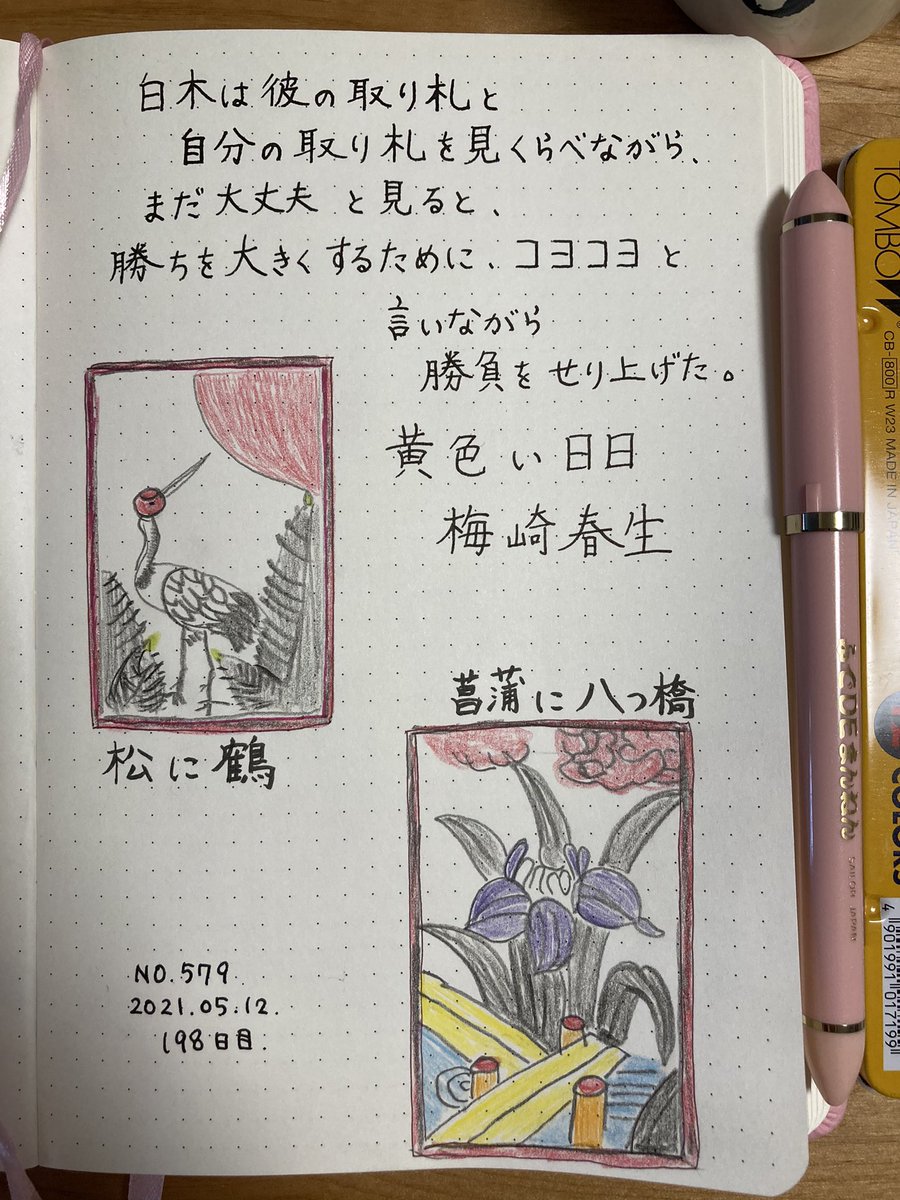 白木は彼の取り札と
自分の取り札を見くらべながら、
まだ大丈夫と見ると、
勝ちを大きくするために、コヨコヨと
言いながら
勝負をせり上げた。
黄色い日日
梅崎春生
松に鶴
菖蒲に八つ橋
NO.579
2021.05.12.
198日目.
ふでDEまんねん
SAILOR JAPAN
TOMBOW
CB-800 R W23 MADE IN JAPAN
COLORS
4 901991 017199